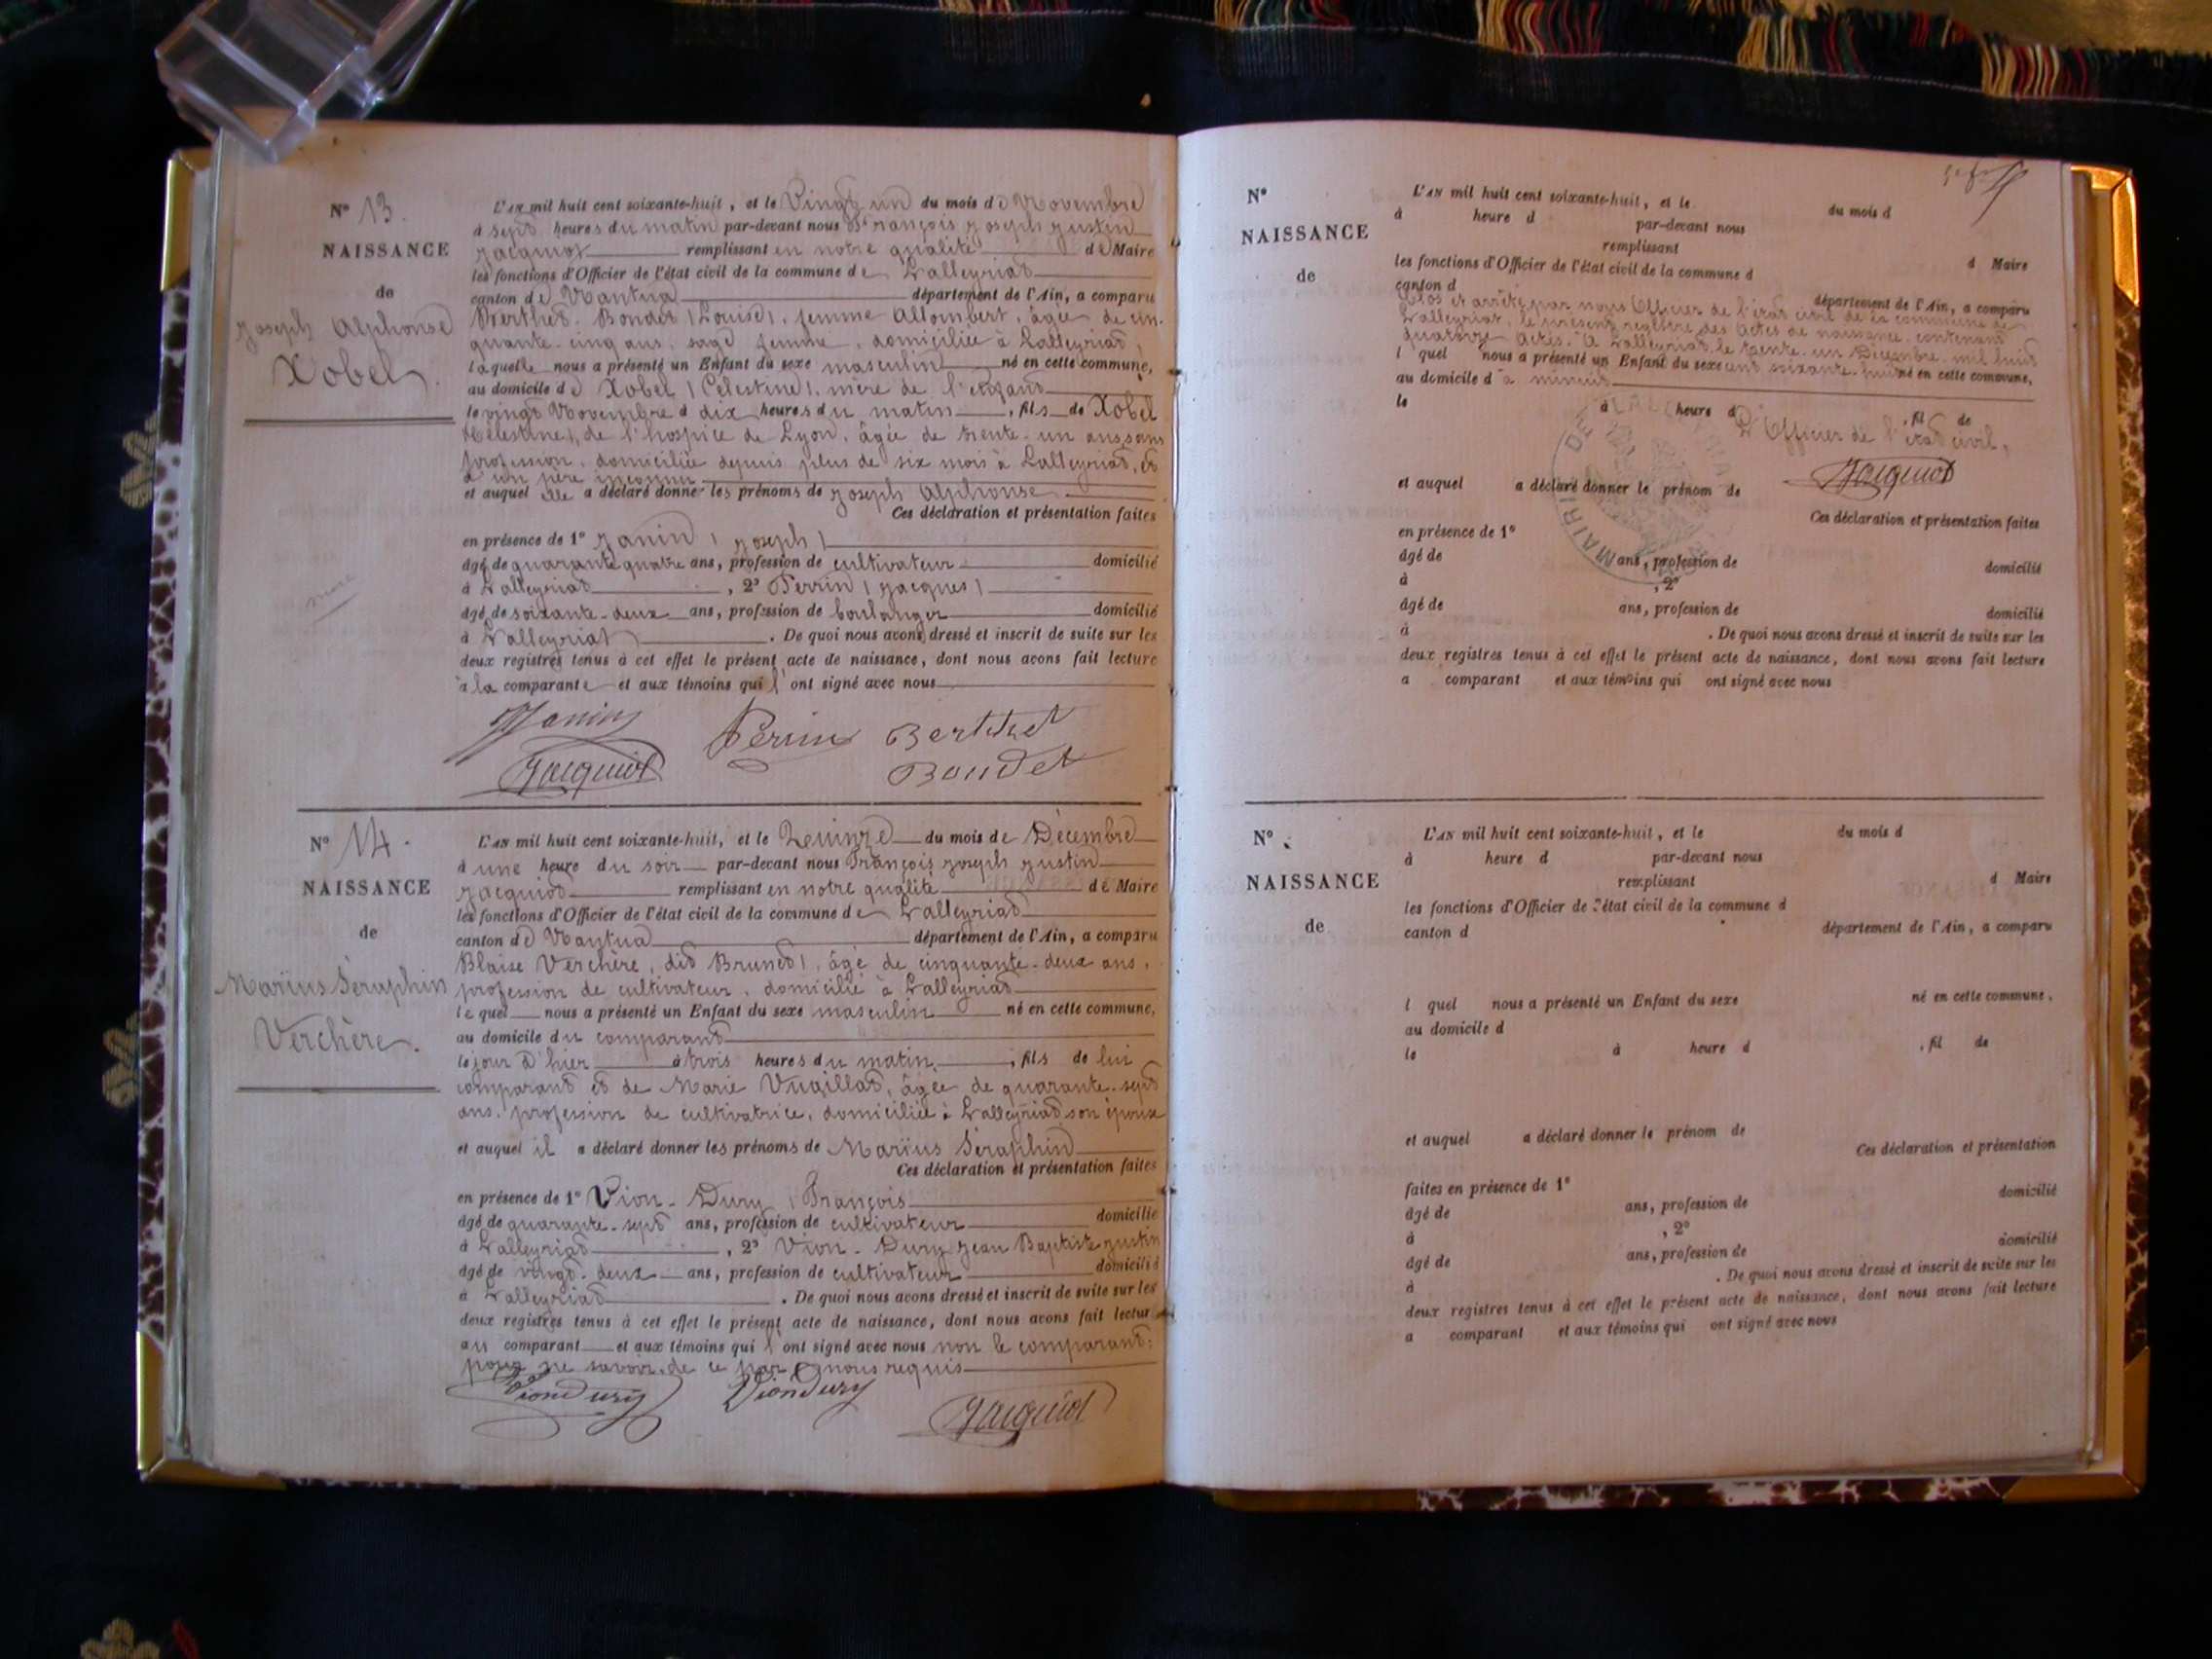 N° 13.
NAISSANCE
de
Joseph Alphonse
Xobel.
L'AN mil huit cent soixante-huit, et le Vingt un du mois de Novembre
à sept heures du matin par-devant nous François Joseph Justin
Jacquiot remplissant en notre qualité de Maire
les fonctions d'Officier de l'état civil de la commune de Lalleyriat
canton de Nantua département de l'Ain, a comparu
Berthet-Bondet (Louise), femme Allombert, âgée de cin-
quante-cinq ans, sage femme, domiciliée à Lalleyriat,
laquelle nous a présenté un Enfant du sexe masculin né en cette commune,
au domicile de Xobel (Célestine), mère de l'enfant
le vingt Novembre à dix heures du matin, fils de Xobel
(Célestine), de l'hospice de Lyon, âgée de trente-un ans, sans
profession, domiciliée depuis plus de six mois à Lalleyriat, et
d'un père inconnu
et auquel elle a déclaré donner les prénoms de Joseph Alphonse
Ces déclaration et présentation faites
en présence de 1° Janin (Joseph)
âgé de quarante quatre ans, profession de cultivateur domicilié
à Lalleyriat, 2° Perrin (Jacques)
âgé de soixante-deux ans, profession de boulanger domicilié
à Lalleyriat. De quoi nous avons dressé et inscrit de suite sur les
deux registres tenus à cet effet le présent acte de naissance, dont nous avons fait lecture
à la comparante et aux témoins qui l'ont signé avec nous
Janin Perrin Berthet
Jacquiot Bondet
N° 14.
NAISSANCE
de
Marius Séraphin
Verchère.
L'AN mil huit cent soixante-huit, et le Quinze du mois de Décembre
à une heure du soir par-devant nous François Joseph Justin
Jacquiot remplissant en notre qualité de Maire
les fonctions d'Officier de l'état civil de la commune de Lalleyriat
canton de Nantua département de l'Ain, a comparu
Blaise Verchère, dit Brunet, âgé de cinquante-deux ans,
profession de cultivateur, domicilié à Lalleyriat
lequel nous a présenté un Enfant du sexe masculin né en cette commune,
au domicile du comparant
le jour d'hier à trois heures du matin, fils de lui
comparant et de Marie Vugillat, âgée de quarante-sept
ans, profession de cultivatrice, domiciliée à Lalleyriat son épouse
et auquel il a déclaré donner les prénoms de Marius Séraphin
Ces déclaration et présentation faites
en présence de 1° Vion-Dury François
âgé de quarante-sept ans, profession de cultivateur domicilié
à Lalleyriat, 2° Vion-Dury Jean Baptiste Justin
âgé de vingt-deux ans, profession de cultivateur domicilié
à Lalleyriat. De quoi nous avons dressé et inscrit de suite sur les
deux registres tenus à cet effet le présent acte de naissance, dont nous avons fait lecture
au comparant et aux témoins qui l'ont signé avec nous non le comparant:
pour ne savoir, de ce par nous requis
Vion Dury Vion Dury Jacquiot
N°
NAISSANCE
de
L'AN mil huit cent soixante-huit, et le du mois d
à heure d par-devant nous
remplissant d Maire
les fonctions d'Officier de l'état civil de la commune d
canton d département de l'Ain, a comparu
Clos et arrêté par nous Officier de l'état civil de la commune de
Lalleyriat, le présent registre des actes de naissance, contenant
quatorze actes. A Lalleyriat, le trente-un Décembre mil huit
l quel nous a présenté un Enfant du sexe né en cette commune,
cent soixante-huit
au domicile d à minuit
le à heure d , fil de
L'Officier de l'état civil,
Jacquiot
MAIRIE DE
et auquel a déclaré donner le prénom de
Ces déclaration et présentation faites
en présence de 1°
âgé de ans, profession de domicilié
à , 2°
âgé de ans, profession de domicilié
à . De quoi nous avons dressé et inscrit de suite sur les
deux registres tenus à cet effet le présent acte de naissance, dont nous avons fait lecture
a comparant et aux témoins qui ont signé avec nous
N°
NAISSANCE
de
L'AN mil huit cent soixante-huit, et le du mois d
à heure d par-devant nous
remplissant d Maire
les fonctions d'Officier de l'état civil de la commune d
canton d département de l'Ain, a comparu
l quel nous a présenté un Enfant du sexe né en cette commune,
au domicile d
le à heure d , fil de
et auquel a déclaré donner le prénom de
Ces déclaration et présentation
faites en présence de 1°
âgé de ans, profession de domicilié
à , 2°
âgé de ans, profession de domicilié
à . De quoi nous avons dressé et inscrit de suite sur les
deux registres tenus à cet effet le présent acte de naissance, dont nous avons fait lecture
a comparant et aux témoins qui ont signé avec nous